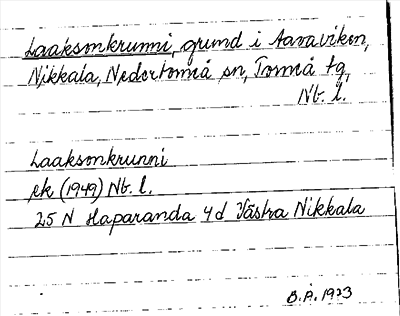 Laaksonkrunni, grund i Aavaviken,
Nikkala, Nedertorneå sn, Torneå tg,
Nb. l.
Laaksonkrunni
ek (1949) Nb. l.
25 N Haparanda 4d Västra Nikkala
B.Å. 1933